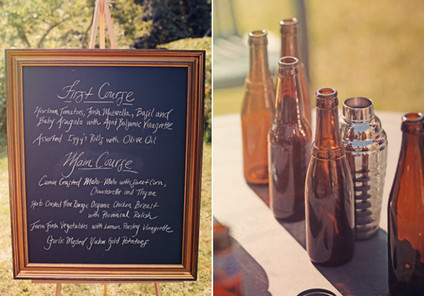 First Course
Heirloom Tomatoes, Fresh Mozzarella, Basil and
Baby Arugula with Aged Balsamic Vinaigrette
Assorted Iggy's Rolls with Olive Oil
Main Course
Cumin Crusted Mahi-Mahi with Sweet Corn,
Chanterelle and Thyme
Herb Crusted Free Range Organic Chicken Breast
with Provencal Relish
Farm Fresh Vegetables with Lemon, Parsley Vinaigrette
Garlic Mashed Yukon Gold Potatoes